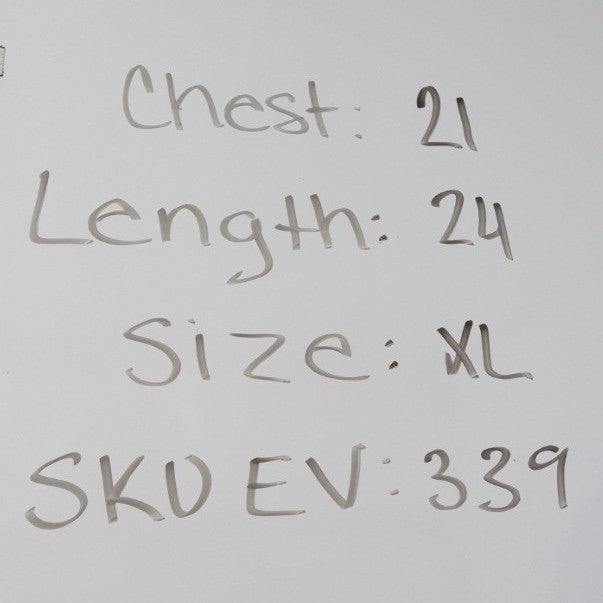 Chest: 21
Length: 24
Size: XL
SKU EV: 339